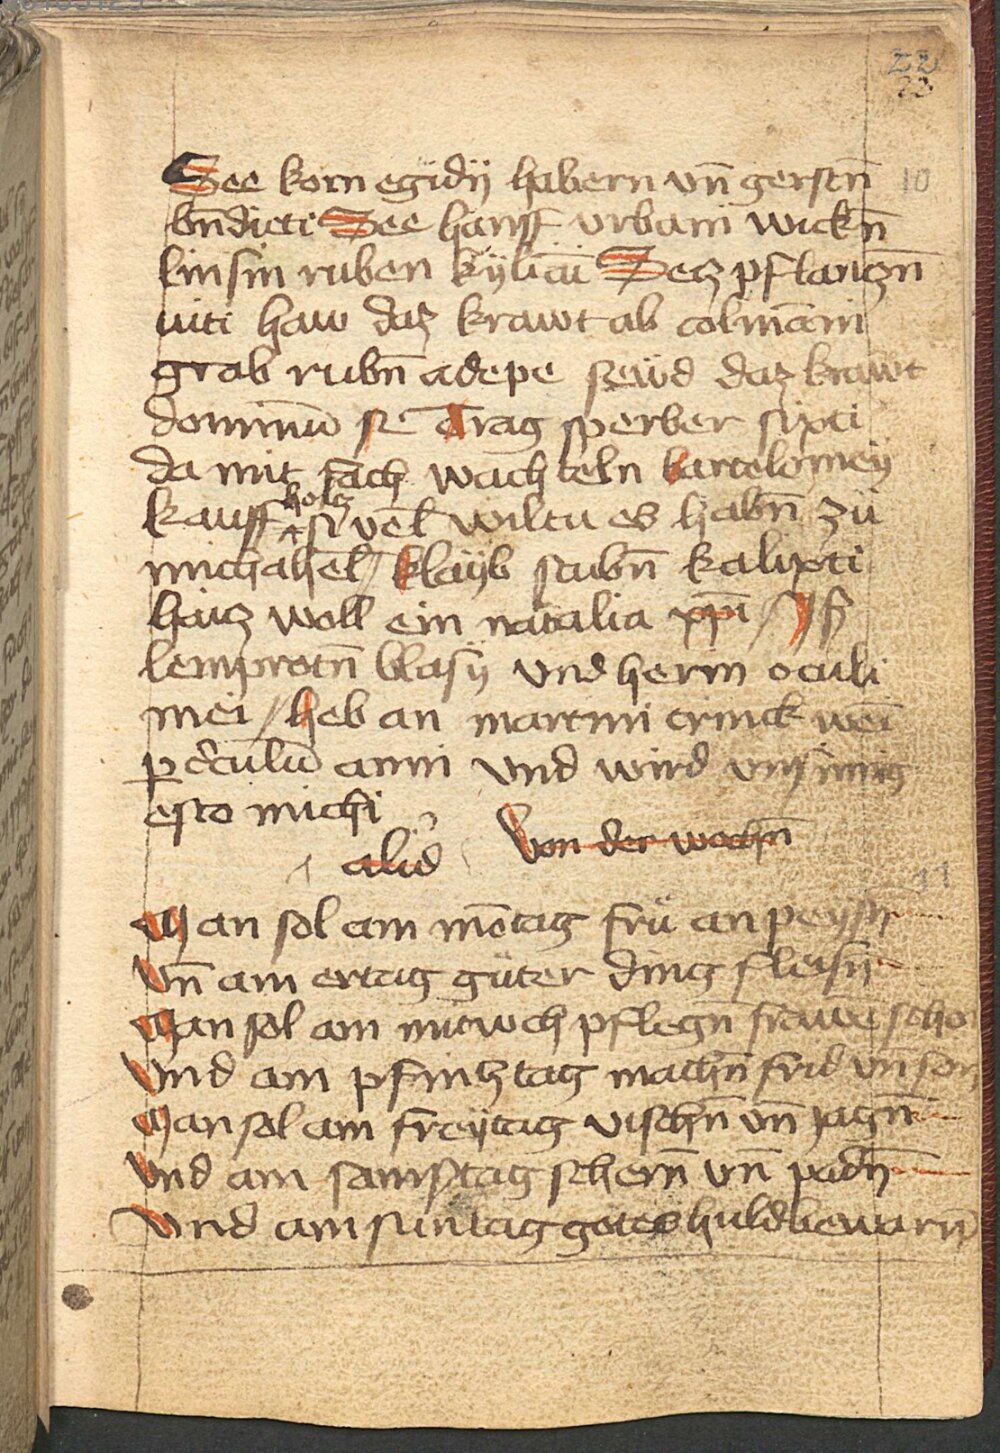 22
23
See korn egidÿ habern vn̄ gerstn̄ 10
bn̄dicti See hanff vrbani wickn̄
linsin ruben kÿliāi Secz pflanczn̄
uiti haw daz krawt ab colmāni
grab rubn̄ adepe sewd daz krawt
dominū ne Trag sperber sixti
da mit fach wachteln bartolomeÿ
kauff holcz si vel wiltu es habn̄ zü
michahel / klayb stubn̄ kalixti
haicz woll ein natalia xpī / yß
lemprotn̄ blasÿ vnd herin oculi
mei / heb an martini trinck wei
p c̄culū anni vnd wird vnsinnig
esto michi
alid Von der wochn̄
11
Man sol am mōtag frü an peyssn
Vn̄ am ertag güter ding fleissn
Man sol am mitwch pflegn̄ frawē scho
Vnd am pfincztag machn̄ frid vn̄ son
Man sol am freÿtag vischn̄ vn̄ jagn̄
Vnd am samstag schern̄ vn̄ padn̄
Vnd am suntag gotes huld bewarn̄